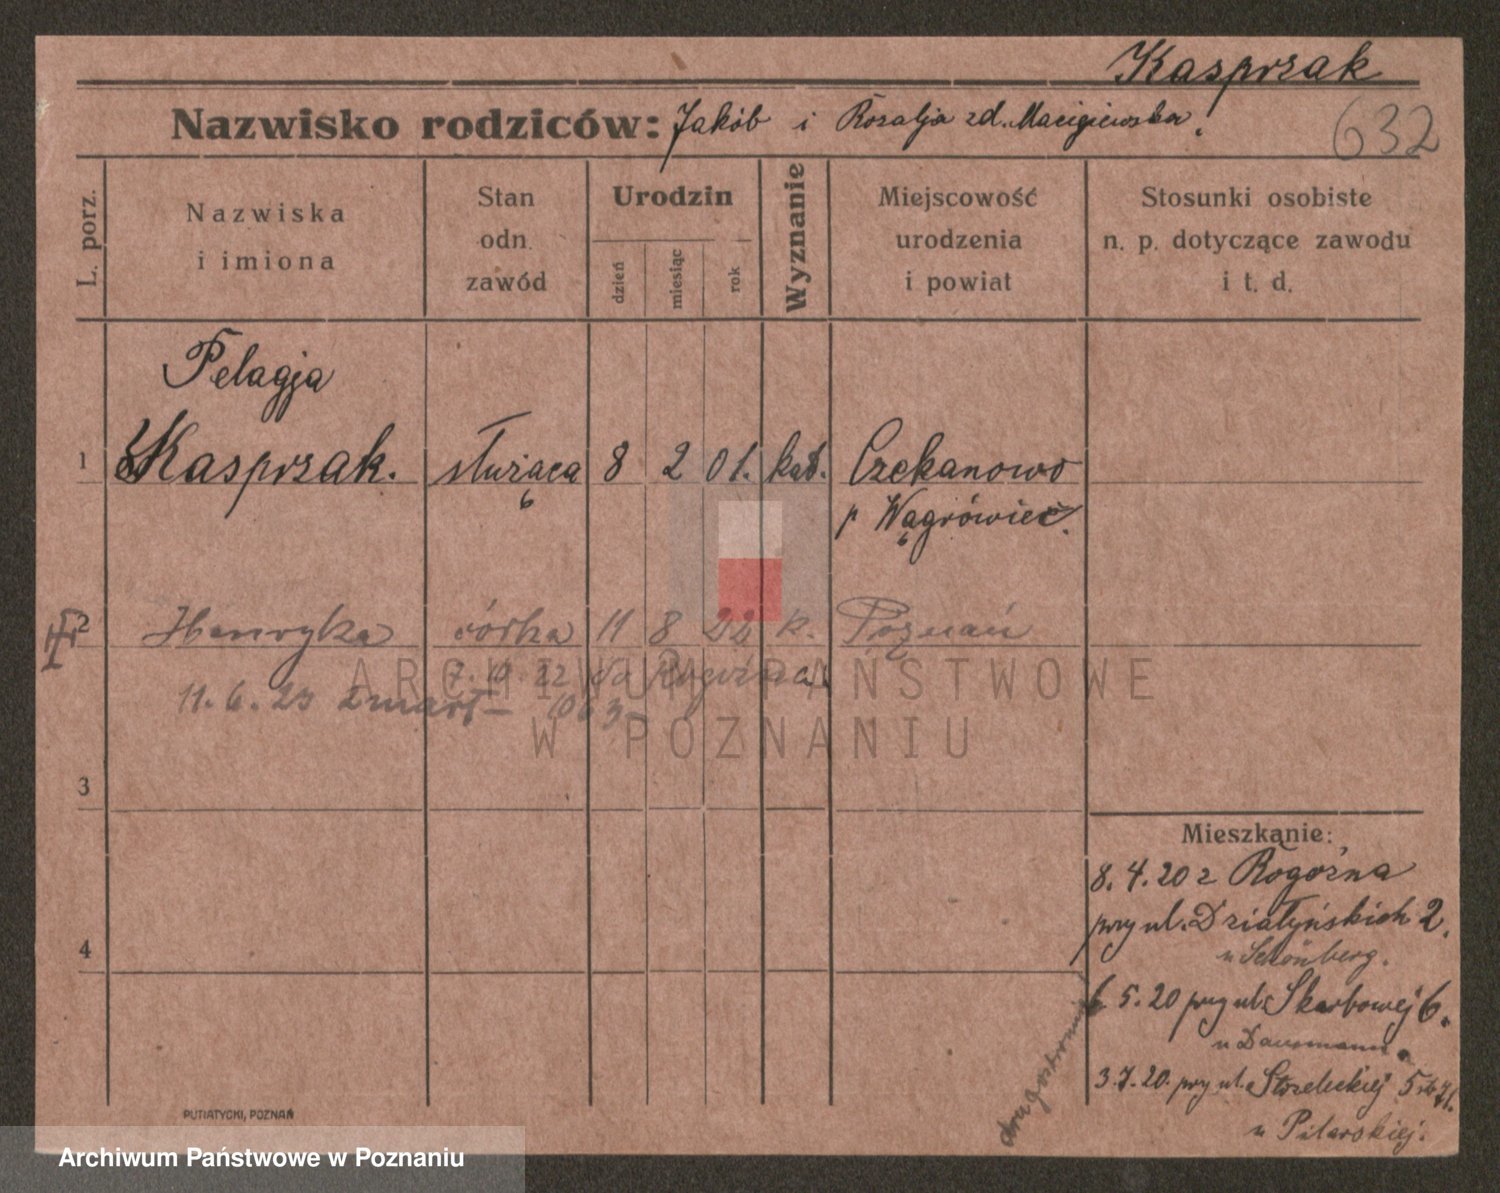 Kasprzak
Nazwisko rodziców: Jakób i Rozalja zd. Maciejewska.
632
L. porz.
Nazwiska
i imiona
Stan
odn.
zawód
Urodzin
dzień
miesiąc
rok
Wyznanie
Miejscowość
urodzenia
i powiat
Stosunki osobiste
n. p. dotyczące zawodu
i t. d.
Pelagja
1 Kasprzak. służąca 8 2 01. kat. Czekanowo
p Wągrówiec.
2 Henryka córka 11 8 22 k. Poznań
11. 6. 23 zmarł
3
4
Mieszkanie:
8. 4. 20 z Rogoźna
przy ul. Działyńskich 2.
u Schönberg.
5. 20 przy ul. Skarbowej 6.
u
3. 7. 20. przy ul. Strzeleckiej
u Pilarskiej.
druga strona
PUTIATYCKI, POZNAŃ
ARCHIWUM PAŃSTWOWE
W POZNANIU
Archiwum Państwowe w Poznaniu